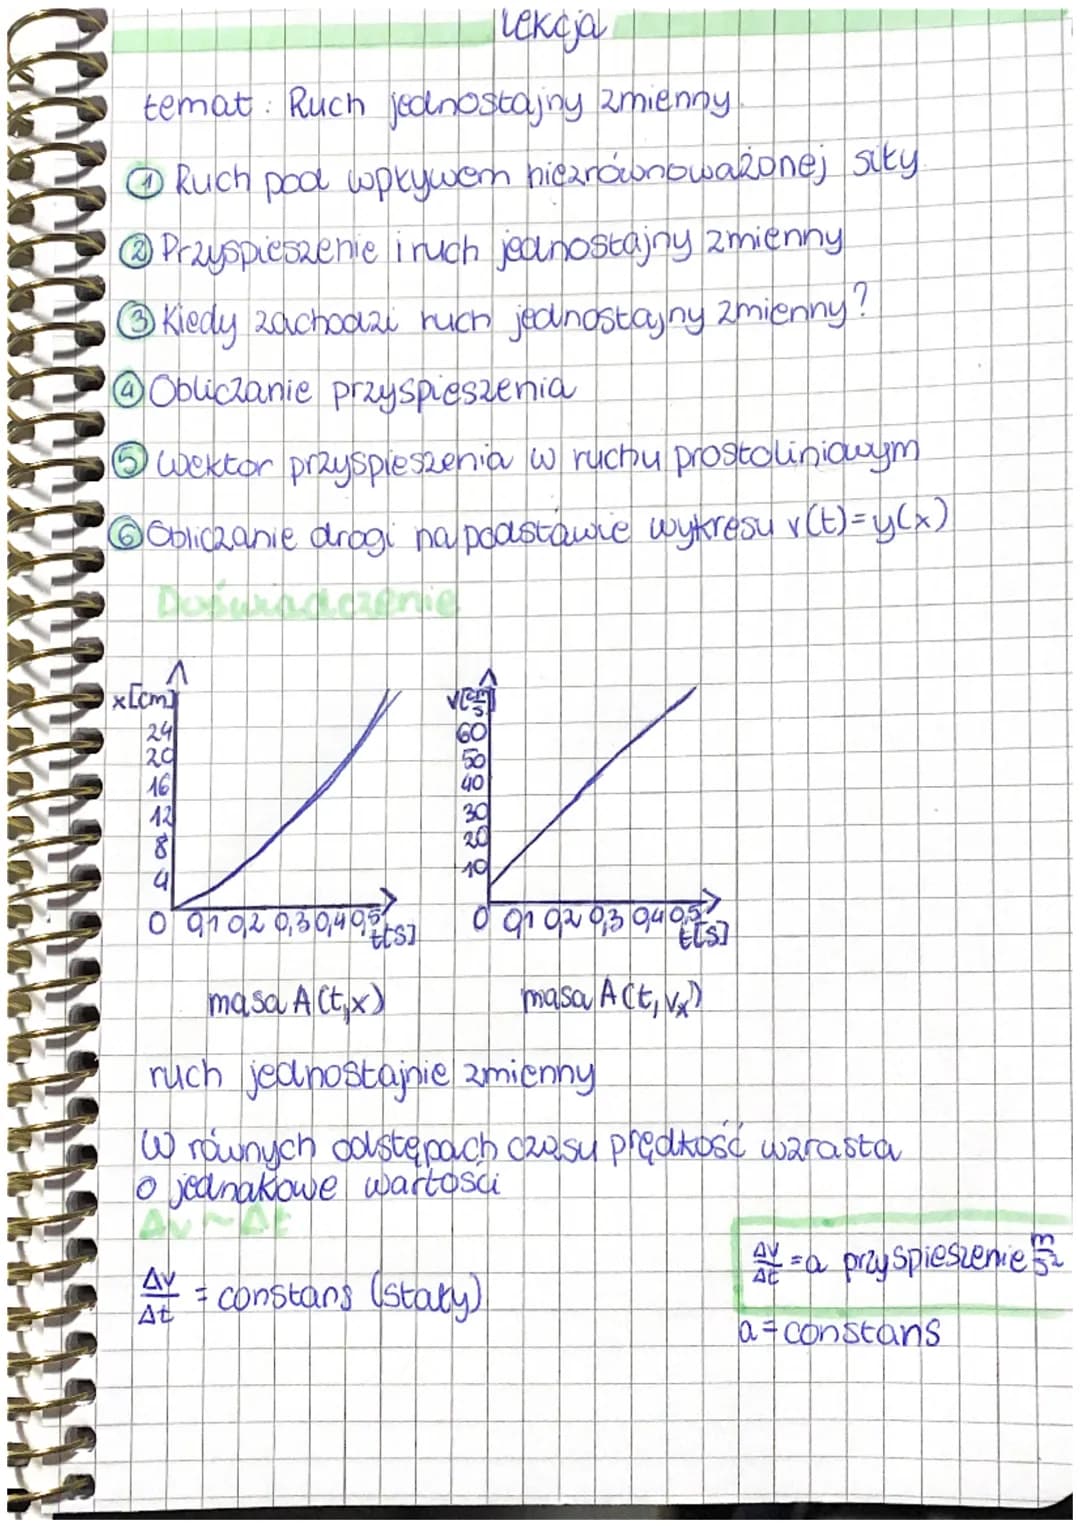 Lekcja
temat: Ruch jednostajny zmienny.
1 Ruch pod wpływem niezrównoważonej siły.
2 Przyspieszenie i ruch jednostajny zmienny
3 Kiedy zachodzi ruch jednostajny zmienny?
4 Obliczanie przyspieszenia
5 Wektor przyspieszenia w ruchu prostoliniowym
6 Obliczanie drogi na podstawie wykresu v(t)=y(x)
Doświadczenie
x[cm]
24
20
16
12
8
4
0 0,1 0,2 0,3 0,4 0,5
t[s]
masa A(t,x)
v[cm/s]
60
50
40
30
20
10
0 0,1 0,2 0,3 0,4 0,5
t[s]
masa A(t, vx)
ruch jednostajnie zmienny
W równych odstępach czasu prędkość wzrasta
o jednakowe wartości
Δv ~ Δt
Δv/Δt = constans (stały)
Δv/Δt = a przyspieszenie m/s²
a = constans